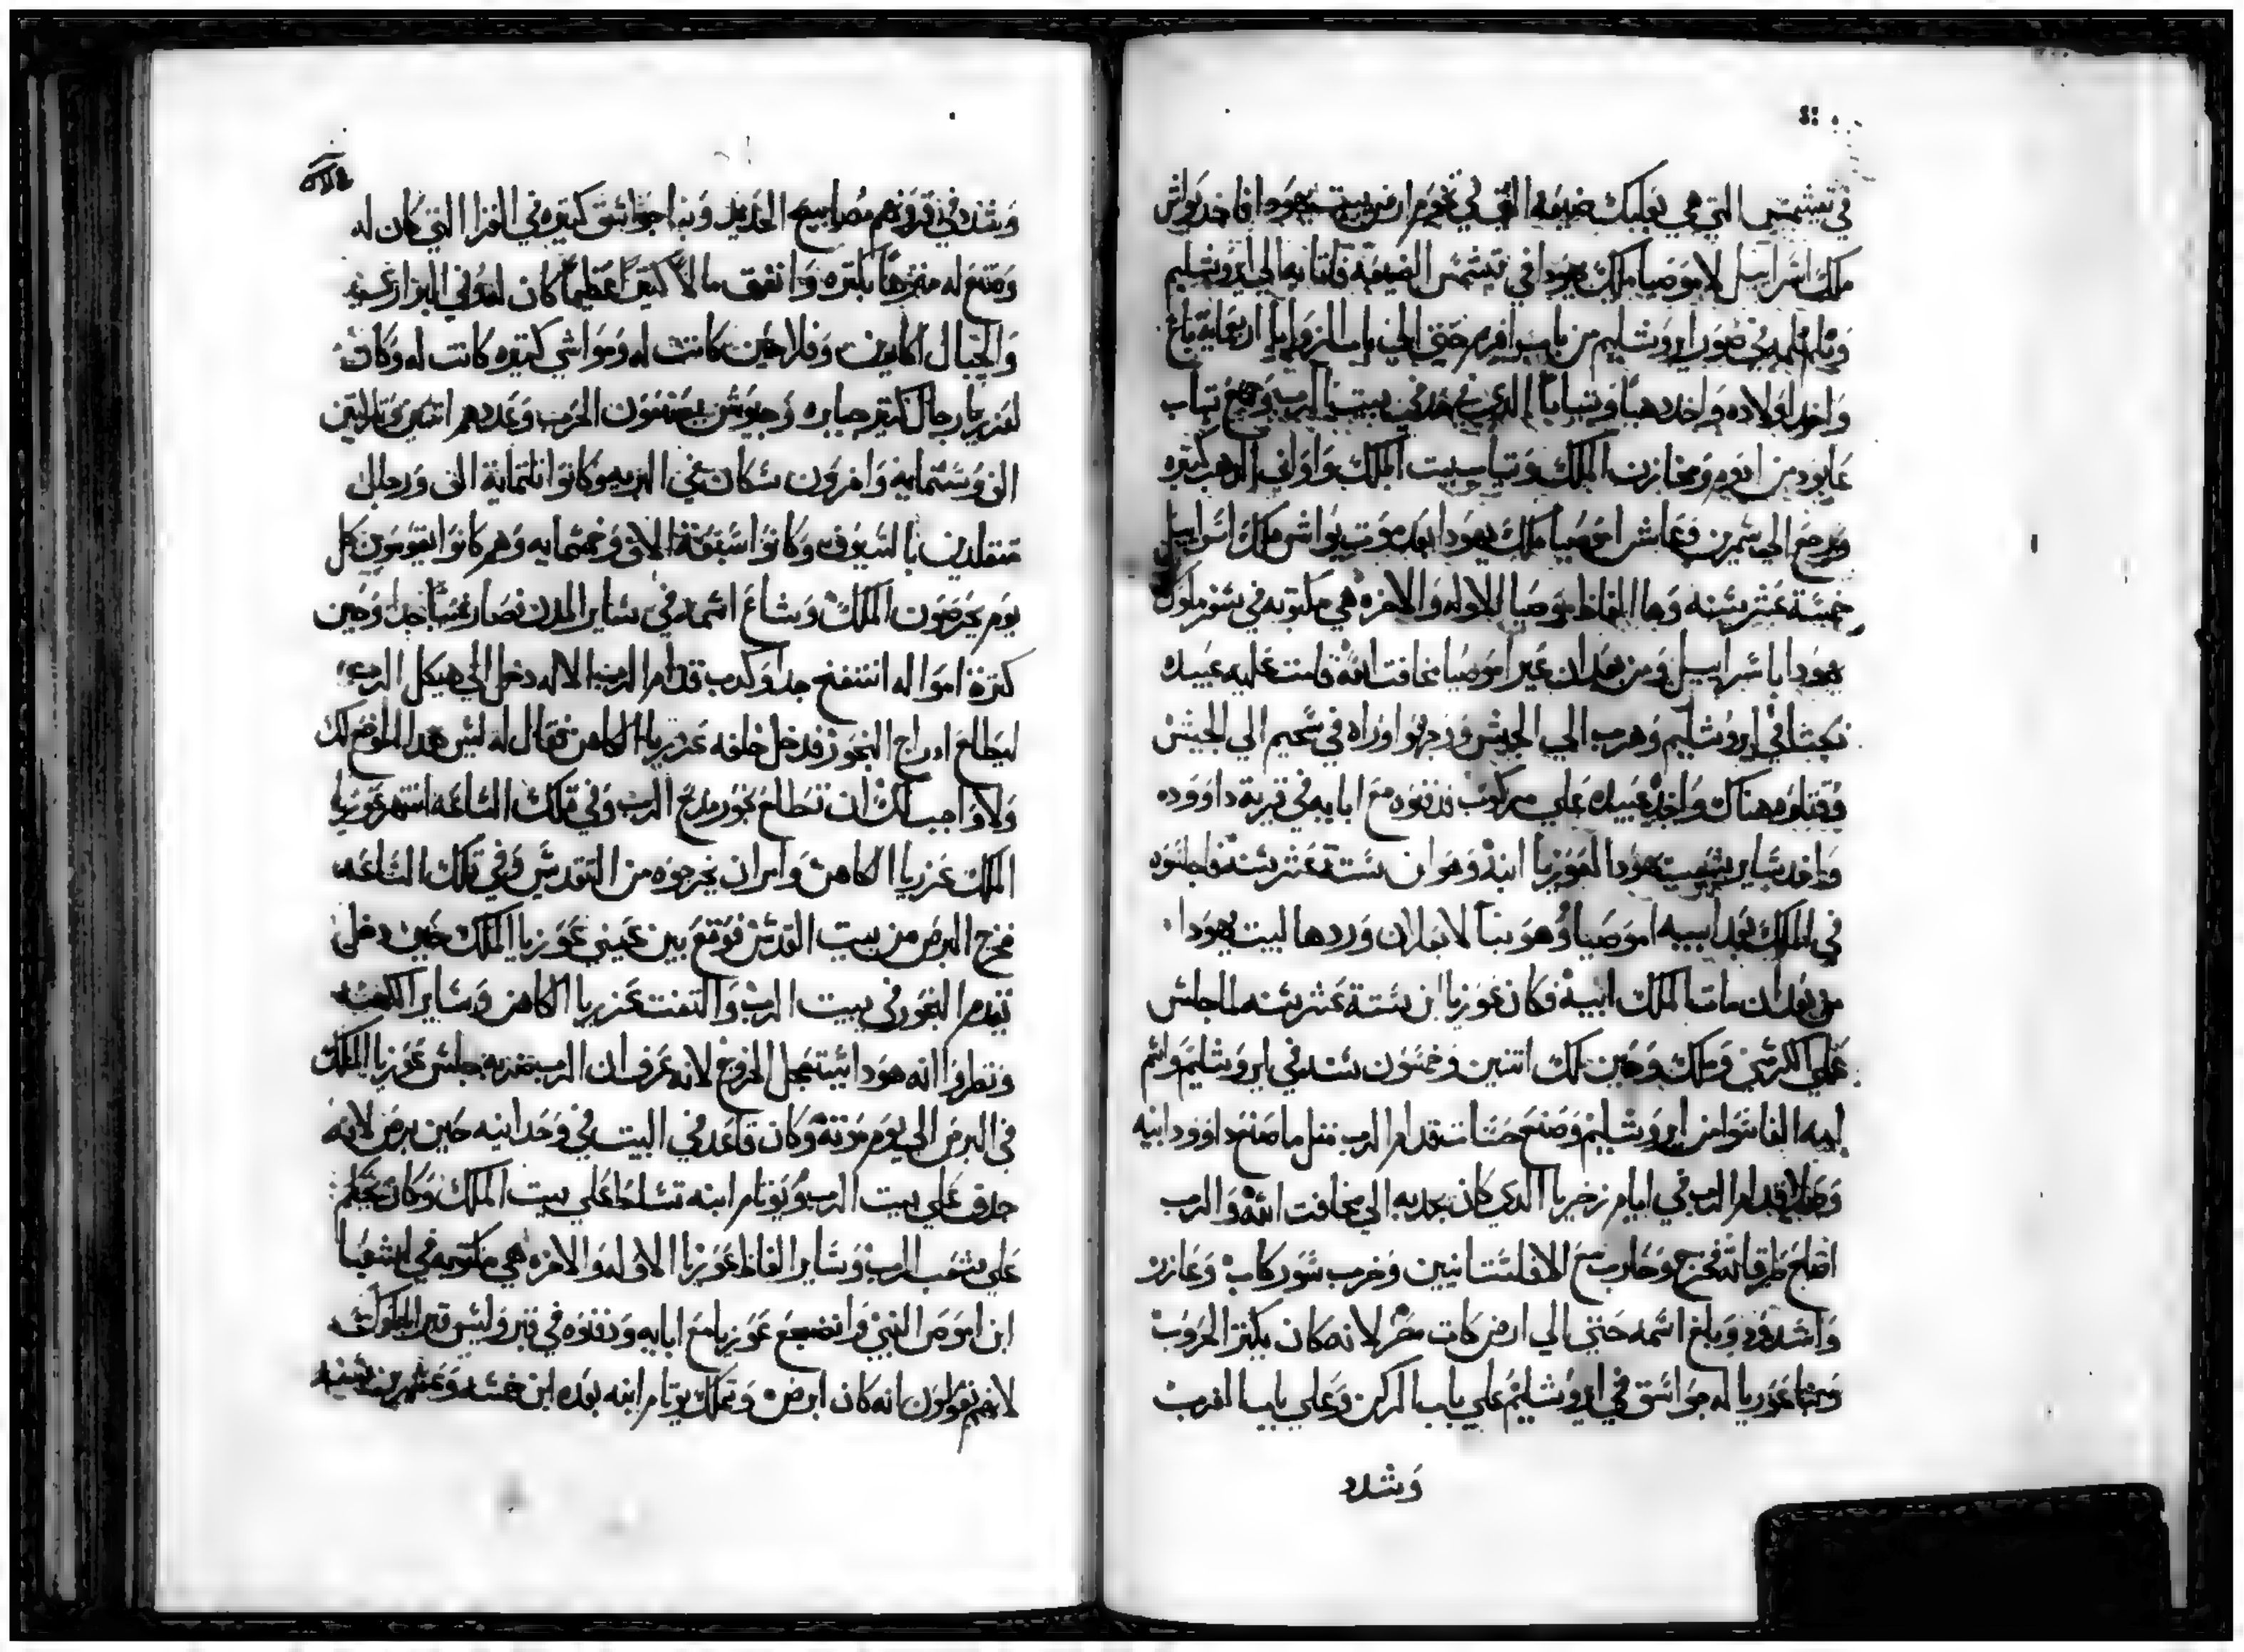 في تيشمس التي هي بعلبك ضيعه التي في تخوم ارض بيت يهودا فاخد يواش
ملك اسراييل لاموصيا ملك يهودا في تيشمس الضيعه فاتا به الي ايروشليم
وتلم تلمه في صور ايروشليم من باب افريم حتي الي باب الزوايا اربعماية باع
واخد اولاده واخد دهبا وتيابا الدي في بيت الرب وجميع تياب
عابود من ادوم ومخازن الملك وتياب بيت الملك واواني الدهب كتيره
ورجع الي شمرين وعاش اموصيا ملك يهودا بعد موت يواش ملك اسراييل
خمسة عشر سنه وها الفاظ موصيا الاوله والاخره هي مكتوبه في سفر ملوك
يهودا باسراييل ومن بعد ان غير اموصيا مخافت الله قامت عليه عبيده
نكيتا في ايروشليم وهرب الي الجيش وزجهوا وراه في سحيم الي الجيش
وقتلوه هناك واخد عبيده علي مركوب فدفنوه مع ابايه في قرية داوود
واخد ساير شعب يهودا لعوزيا ابنه وهو ابن ستة عشر سنه فاجلسوه
في الملك بعد ابيه اموصيا وهو بنا لابلان وردها لبيت يهودا
من بعد ان مات الملك ابيه فكان عوزيا ابن ستة عشر سنه لما جلس
علي الكرسي وملك وحين ملك اتنين وخمسون سنه في ايروشليم واسم
امه الفاسوا من ايروشليم وصنع حسنات قدام الرب متل ما صنع داوود ابيه
وطلا قدام الرب في ايام زخريا الدي كان يجدبه الي مخافت الله والرب
افلح طرقاته فخرج وحارب مع الافلستانيين وخرب سور كاب وعازر
واشدود وبلغ اسمه حتي الي ارض كانت مصر لانه كان يكتر الحروب
وبنا عوزيا له جواسق في ايروشليم علي باب الركن وعلي باب الغرب
وشدد
وشدد في قرونهم مصابيح الحديد وبنا جواسق كتيره في القرا التي كان له
وصنع له منزها بكتره وانفق مالا كتيرا عظيما كان له في المزارع
والجبال اكامين وفلاحين كانت له ومواشي كتيره كانت له وكان
لعزريا رجال كتير جبابره وجيوش يصنعون الحرب وعددهم اتنين وتلاتين
الف وستمايه واخرون سكان في البريه وكانوا تلتماية الف ورجال
متقلدين بالسيوف وكانوا سبعة الاف وخمسمايه وهم كانوا يقومون كل
يوم يحرصون الملك وشاع اسمه في ساير المدن فصار غنيا جدا وحين
كترة امواله انتفخ جدا وكدب قدام الرب الاله دخل الي هيكل الرب
ليطلع ادراج البخور فدخل خلفه عزريا الكاهن فقال له ليس هدا الموضع لك
ولا واجب لك ان تطلع بخور مدبح الرب وفي تلك الساعه انتهر عوزيا
الملك عزريا الكاهن وامر ان يخرجوه من القدس وفي تلك الساعه
خرج البرص من بيت القدس فوقع بين عيني عوزيا الملك حين دخل
تقدم البخور في بيت الرب والتفت عزريا الكاهن وساير الكهنه
ونظروا انه هودا يستعجل الخروج لانه عرف ان الرب ضربه جلس عوزيا الملك
في البرص الي يوم موته وكان قاعد في البيت في وحدانيه حين برص لانه
حدف علي بيت الرب ويوتام ابنه تسلط علي بيت الملك وكان يحكم
علي شعب الرب وساير الفاظ عوزيا الاوله والاخره هي مكتوبه في اشعيا
ابن اموص النبي وانضجع عوزيا مع ابايه ودفنوه في قبر وليس قبر الملوك
لانهم يقولون انه كان ابرص وتملك يوتام ابنه بعده ابن خمسه وعشرين سنه